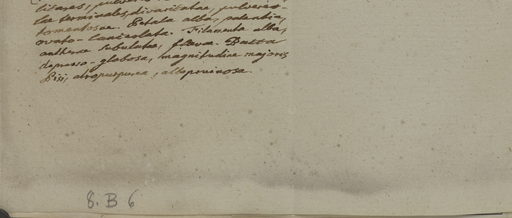 litares, pulver
lae terminales, divaricatae, pulvereo-
tomentosae. Petala alba, patentia,
ovato-lanceolata. Filamenta alba,
antherae subulatae, flavae. Bacca
depresso-globosa, magnitudine majoris
Pisi, atropurpurea, albopruinosa.
8. B 6